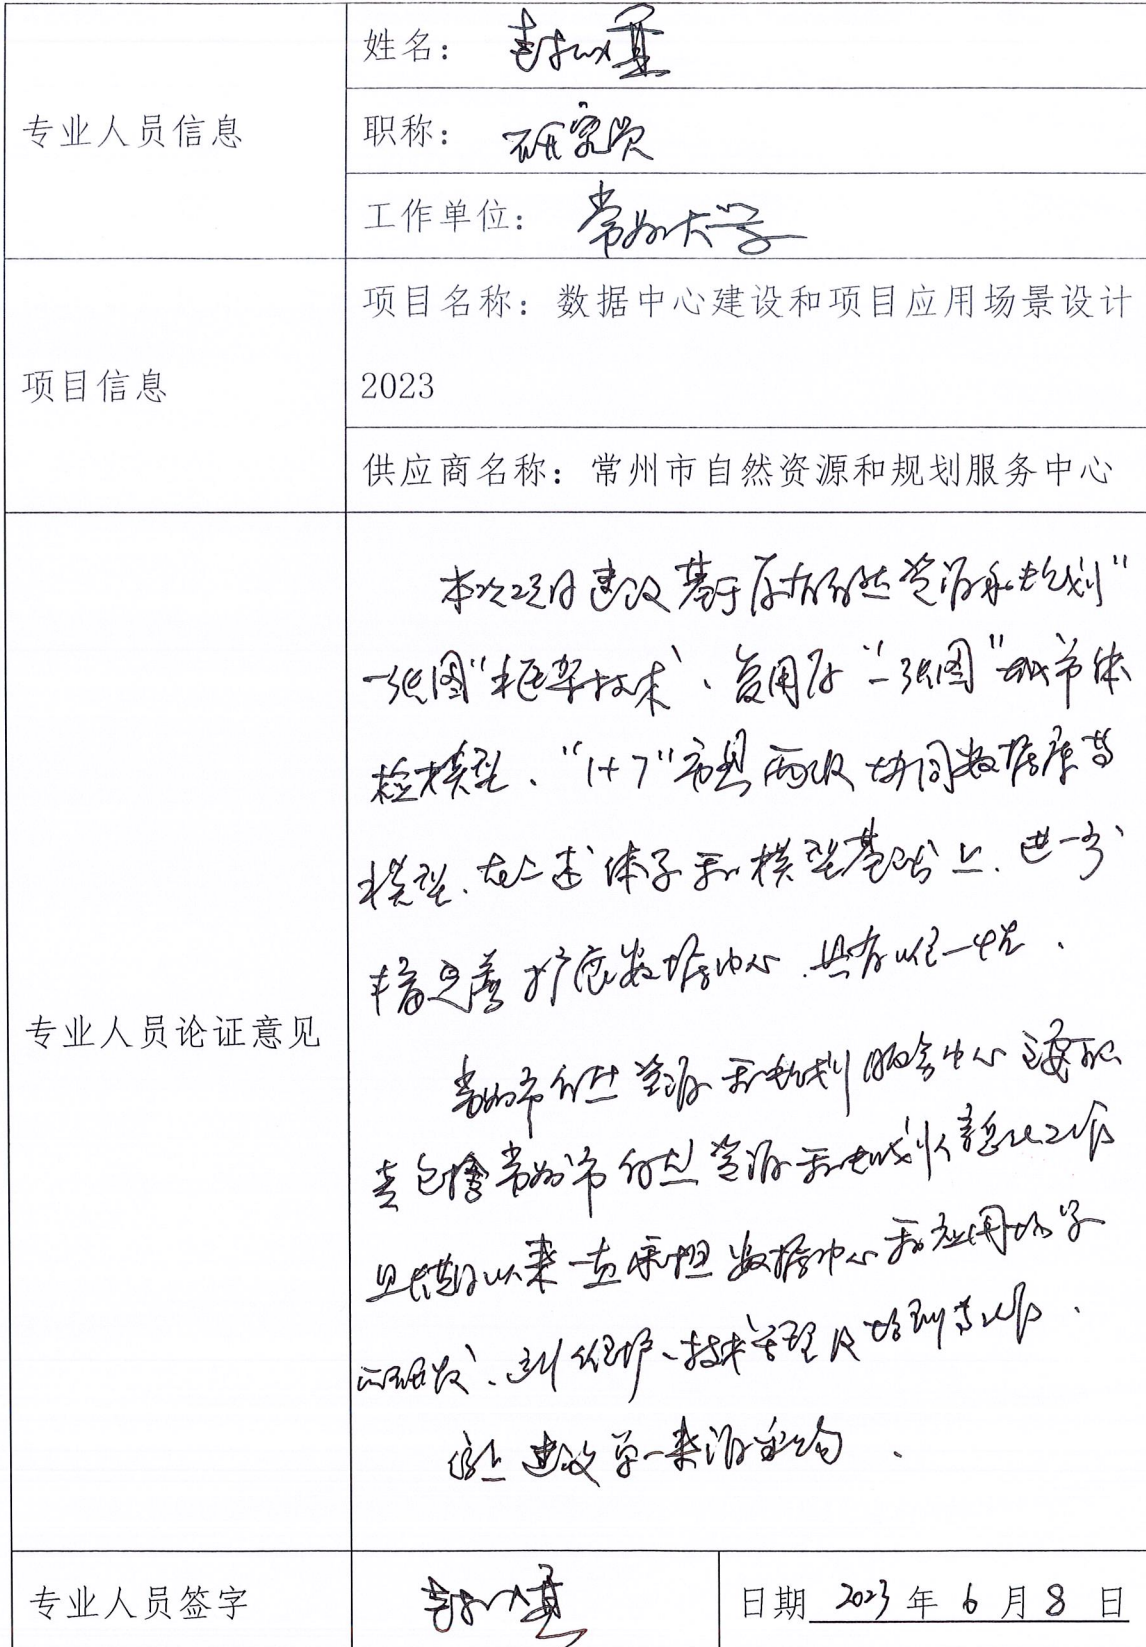 专业人员信息
姓名：
职称： 研究员
工作单位： 常州大学
项目信息
项目名称：数据中心建设和项目应用场景设计
2023
供应商名称：常州市自然资源和规划服务中心
专业人员论证意见
本次项目建设基于原有自然资源和规划"
一张图"框架技术、复用原"一张图"城市体
检模型、"1+7"市县两级协同数据库等
模型、在上述体系和模型基础上、进一步
丰富完善扩展数据中心、具有唯一性.
常州市自然资源和规划服务中心主要职
责包括常州市自然资源和规划信息化工作
且长期以来一直承担数据中心和应用场景
研发、维护、技术管理及培训等工作.
综上建议单一来源采购.
专业人员签字
日期 2023 年 6 月 8 日